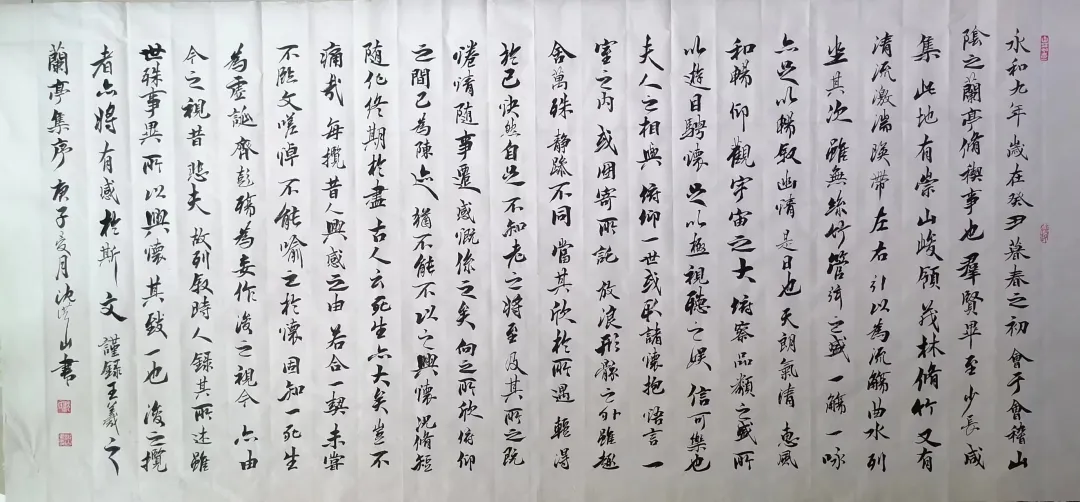 永和九年歲在癸丑暮春之初會于會稽山
陰之蘭亭脩禊事也羣賢畢至少長咸
集此地有崇山峻領茂林脩竹又有
清流激湍暎帶左右引以為流觴曲水列
坐其次雖無絲竹管弦之盛一觴一咏
亦足以暢敘幽情是日也天朗氣清惠風
和暢仰觀宇宙之大俯察品類之盛所
以遊目騁懷足以極視聽之娛信可樂也
夫人之相與俯仰一世或取諸懷抱悟言一
室之內或因寄所託放浪形骸之外雖趣
舍萬殊靜躁不同當其欣於所遇輒得
於己快然自足不知老之將至及其所之既
惓情隨事遷感慨係之矣向之所欣俯仰
之間已為陳迹猶不能不以之興懷況脩短
隨化終期於盡古人云死生亦大矣豈不
痛哉每攬昔人興感之由若合一契未嘗
不臨文嗟悼不能喻之於懷固知一死生
為虛誕齊彭殤為妄作後之視今亦由
今之視昔悲夫故列敘時人錄其所述雖
世殊事異所以興懷其致一也後之攬
者亦將有感於斯文謹錄王羲之
蘭亭集序庚子 月沈 山書